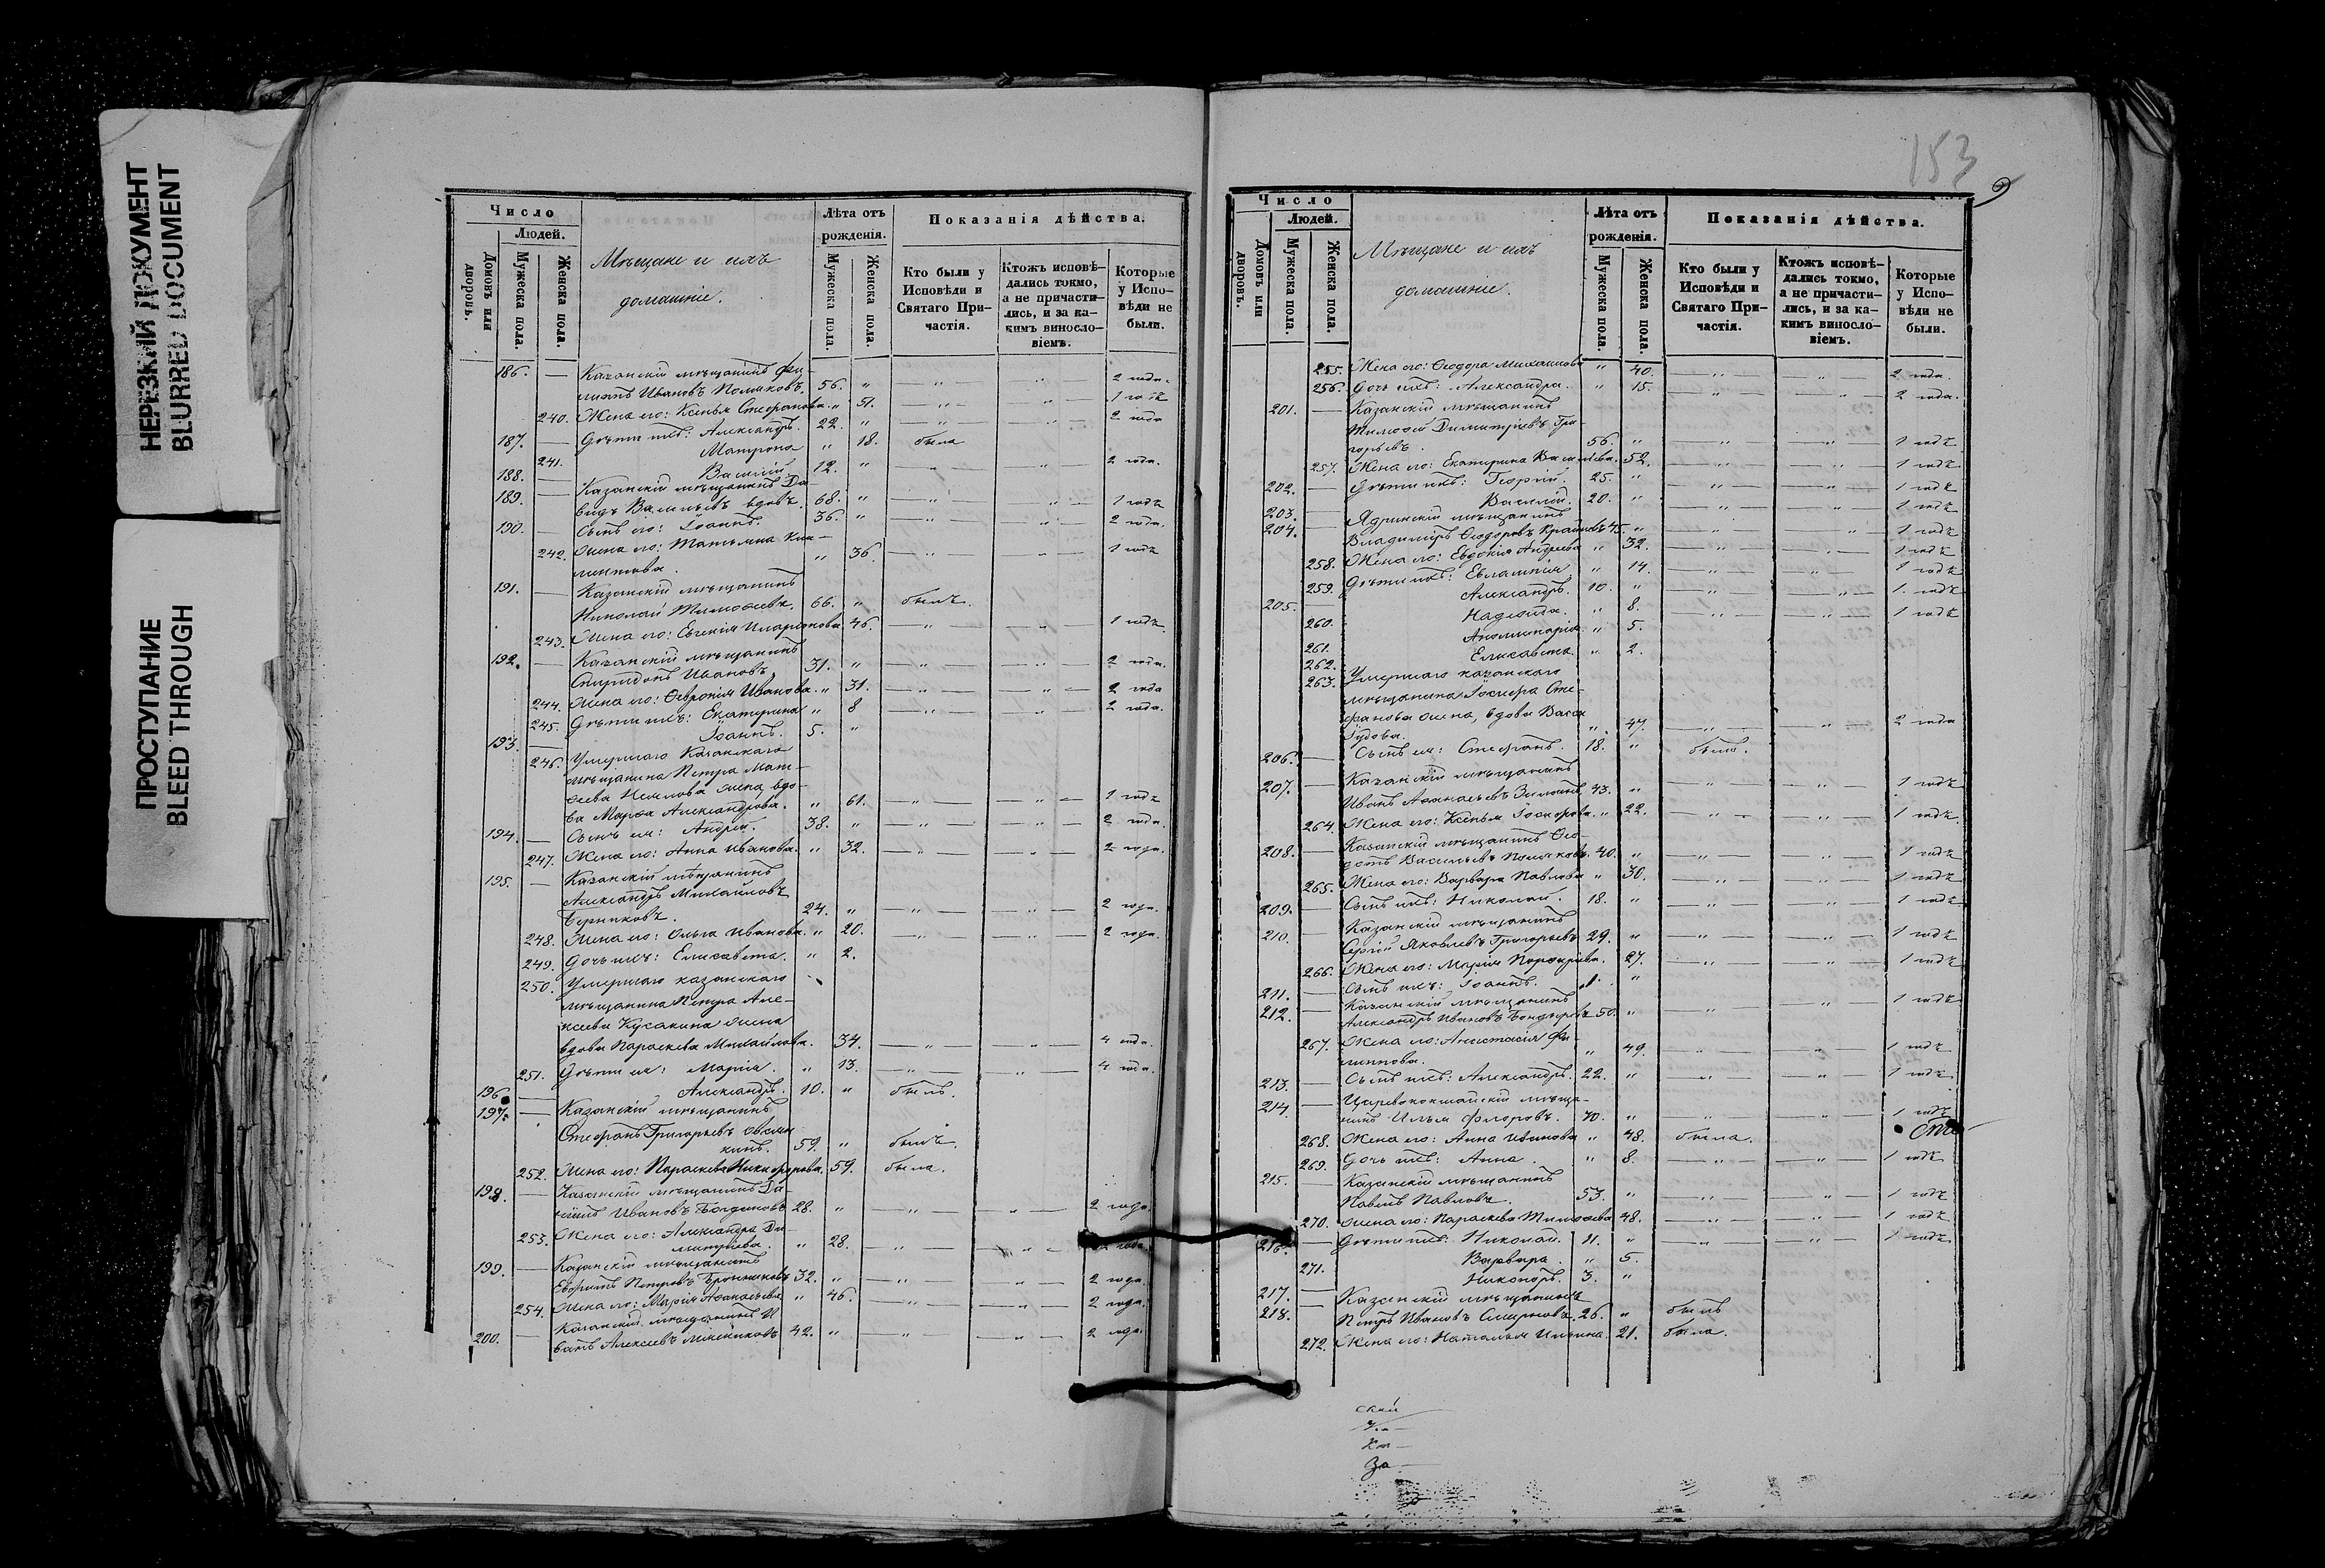 НЕРЕЗКИЙ ДОКУМЕНТ
BLURRED DOCUMENT
ПРОСТУПАНИЕ
BLEED THROUGH
Число
Людей.
Домовъ или дворовъ.
Мужеска пола.
Женска пола.
Мѣщане и ихъ
домашніе.
Лѣта отъ рожденія.
Мужеска пола.
Женска пола.
Показанія дѣйства.
Кто были у Исповѣди и Святаго Причастія.
Ктожъ исповѣдались токмо, а не причастились, и за какимъ винословіемъ.
Которые у Исповѣди не были.
186. — Казанскій мѣщанинъ Фи-
липпъ Ивановъ Поляковъ. 56. „ — „ — „ — 2 года.
240. Жена его: Ксенія Стефанова. „ 51. — „ — „ — 1 годъ
187. — Дѣти ихъ: Александръ. 22. „ — „ — „ — 2 года
241. Матрона „ 18. была
188. — Василій 12. „ „ „ 2 года.
189. — Казанскій мѣщанинъ Да-
видъ Васильевъ вдовъ. 68. „ — „ — „ — 1 годъ
190. — Сынъ его: Іоаннъ. 36. „ — „ — „ — 2 года.
242. Жена его: Татьяна Кли-
ментова. „ 36. — „ — „ — 1 годъ
191. — Казанскій мѣщанинъ
Николай Тимофеевъ. 66. „ былъ.
243. Жена его: Евгенія Иларіонова. 46. — „ — „ — 1 годъ.
192. — Казанскій мѣщанинъ
Спиридонъ Ивановъ. 31. „ — „ — „ — 2 года.
244. Жена его: Ѳевронія Иванова. „ 31. — „ — „ — 2 года
245. Дѣти ихъ: Екатерина „ 8 — „ — „ — 2 года.
193. — Іоаннъ. 5. „
246. Умершаго Казанскаго
мѣщанина Петра Мат-
ѳеева жена, вдо-
ва Марѳа Александрова. „ 61. — „ — „ — 1 годъ
194. — Сынъ ея: Андрей. 38. „ — „ — „ — 2 года.
247. Жена его: Анна Иванова. „ 32. — „ — „ — 2 года.
195. — Казанскій мѣщанинъ
Александръ Михайловъ
24. „ — „ — „ — 2 года.
248. Жена его: Ольга Иванова. „ 20. — „ — „ — 2 года.
249. Дочь ихъ: Елисавета. „ 2.
250. Умершаго казанскаго
мѣщанина Петра Але-
ксеева Кусакина жена
вдова Параскева Михайлова. 34. — „ — „ — 4 года.
251. Дѣти ея: Марія. „ 13. — „ — „ — 4 года.
196. — Александръ. 10. „ былъ.
197. — Казанскій мѣщанинъ
Стефанъ Григорьевъ Овсян
кинъ. 59. „ былъ.
252. Жена его: Параскева Никифорова. 59. была.
198. — Казанскій мѣщанинъ Да-
ніилъ Ивановъ Богдановъ 28. „ — „ — „ — 2 года.
253. Жена его: Александра Ди-
митріева. „ 28. — „ — „ — 2 года.
199. — Казанскій мѣщанинъ
Петровъ 32. „ — „ — „ — 2 года.
254. Жена его: Марія Аѳанасьева „ 46. — „ — „ — 2 года.
200. — Казанскій мѣщанинъ И
ванъ Алексеевъ 42. „ — „ — „ — 2 года.
153
9
Число
Людей.
Домовъ или дворовъ.
Мужеска пола.
Женска пола.
Мѣщане и ихъ
домашніе.
Лѣта отъ рожденія.
Мужеска пола.
Женска пола.
Показанія дѣйства.
Кто были у Исповѣди и Святаго Причастія.
Ктожъ исповѣдались токмо, а не причастились, и за какимъ винословіемъ.
Которые у Исповѣди не были.
255. Жена его: Ѳеодора Михаилова „ 40. — „ — „ — 2 года.
256. Дочь ихъ: Александра. „ 15. — „ — „ — 2 года.
201. — Казанскій мѣщанинъ
Тимоѳей Димитріевъ Гри-
горьевъ. 56. „ — „ — „ — 1 годъ
257. Жена его: Екатерина Васильева. 52. — „ — „ — 1 годъ
202. — Дѣти ихъ: Георгій. 25. „ — „ — „ — 1 годъ
203. — Василій. 20. „ — „ — „ — 1 годъ
204. — Ядринскій мѣщанинъ
Владиміръ Ѳеодоровъ 45. „ — „ — „ — 1 годъ
258. Жена его: Евдокія Андреева „ 32. — „ — „ — 1 годъ
259. Дѣти ихъ: Евлампія „ 14. — „ — „ — 1 годъ
205. — Александръ. 10. „ — „ — „ — 1 годъ
260. Надежда. „ 8. — „ — „ — 1 годъ
261. Аполлинарія „ 5.
262. Елисавета. „ 2.
263. Умершаго казанскаго
мѣщанина Іосифа Сте-
фанова жена, вдова Васса
„ 47. — „ — „ — 2 года
206. — Сынъ ея: Стефанъ. 18. „ былъ.
207. — Казанскій мѣщанинъ
Иванъ Аѳанасьевъ Зиминъ. 43. „ — „ — „ — 1 годъ
264. Жена его: Ксенія „ 22. — „ — „ — 1 годъ.
208. — Казанскій мѣщанинъ Ѳео-
дотъ Васильевъ Поляковъ. 40. „ — „ — „ — 1 годъ
265. Жена его: Варвара Павлова „ 30. — „ — „ — 1 годъ
209. — Сынъ ихъ: Николай. 18. „ — „ — „ — 1 годъ
210. — Казанскій мѣщанинъ
Сергій Яковлевъ Григорьевъ 29. „ — „ — „ — 1 годъ
266. Жена его: Марія Порфиріева. 27. — „ — „ — 1 годъ
211. — Сынъ ихъ: Іоаннъ. 1. „
212. — Казанскій мѣщанинъ
Александръ Ивановъ Бондаревъ 50. „ — „ — „ — 1 годъ
267. Жена его: Анастасія Фи-
липпова. „ 49. — „ — „ — 1 годъ
213. — Сынъ ихъ: Александръ. 22. „ — „ — „ — 1 годъ
214. — Царевококшайскій мѣща-
нинъ Илья Флоровъ. 70. „ — „ — „ — 1 годъ
268. Жена его: Анна Иванова „ 48. была.
269. Дочь ихъ: Анна. „ 8. — „ — „ — 1 годъ
215. — Казанскій мѣщанинъ
Павелъ Павловъ. 53. „ — „ — „ — 1 годъ
270. Жена его: Параскева Тимоѳеева 48. — „ — „ — 1 годъ
216. — Дѣти ихъ: Николай. 11. „ — „ — „ — 1 годъ
271. Варвара. „ 5.
217. — Никоноръ. 3. „
218. — Казанскій мѣщанинъ
Петръ Ивановъ Смирновъ. 26. „ былъ
272. Жена его: Наталья Ильина. 21. была.